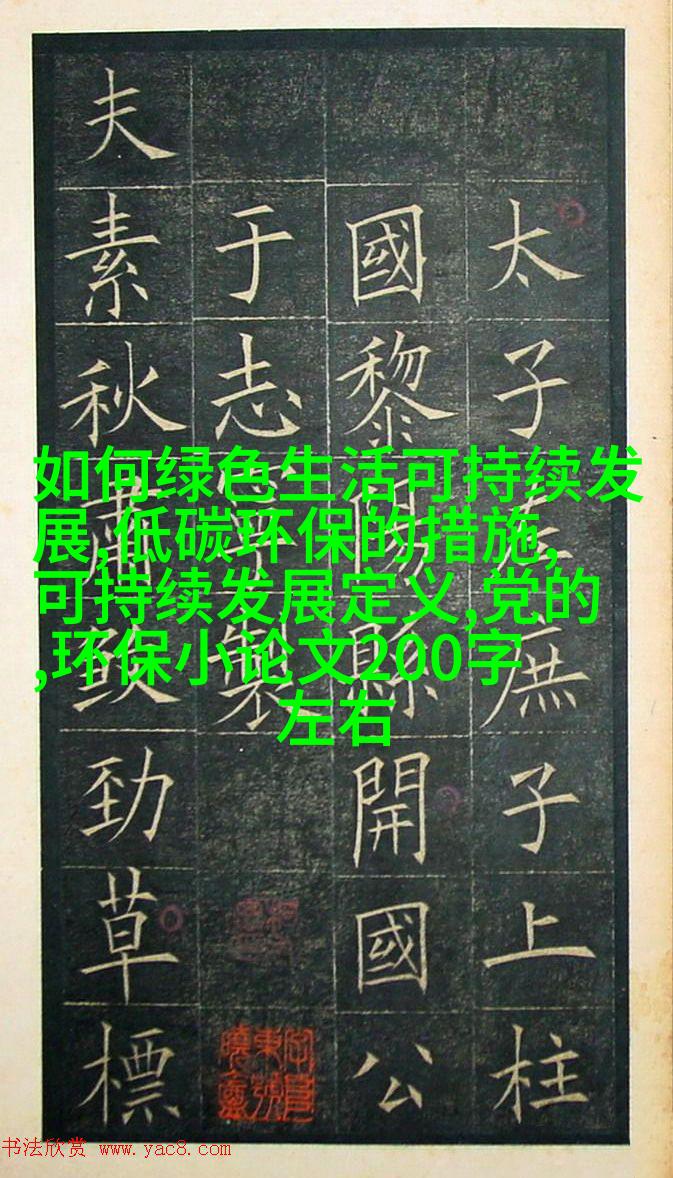 太子左庶子上柱
國黎陽縣開國公
于志寧製
夫素秋肅煞勁草標
如何绿色生活可持续发
展,低碳环保的措施,
可持续发展定义,党的
,环保小论文200字
左右
书法欣赏 www.yac8.com